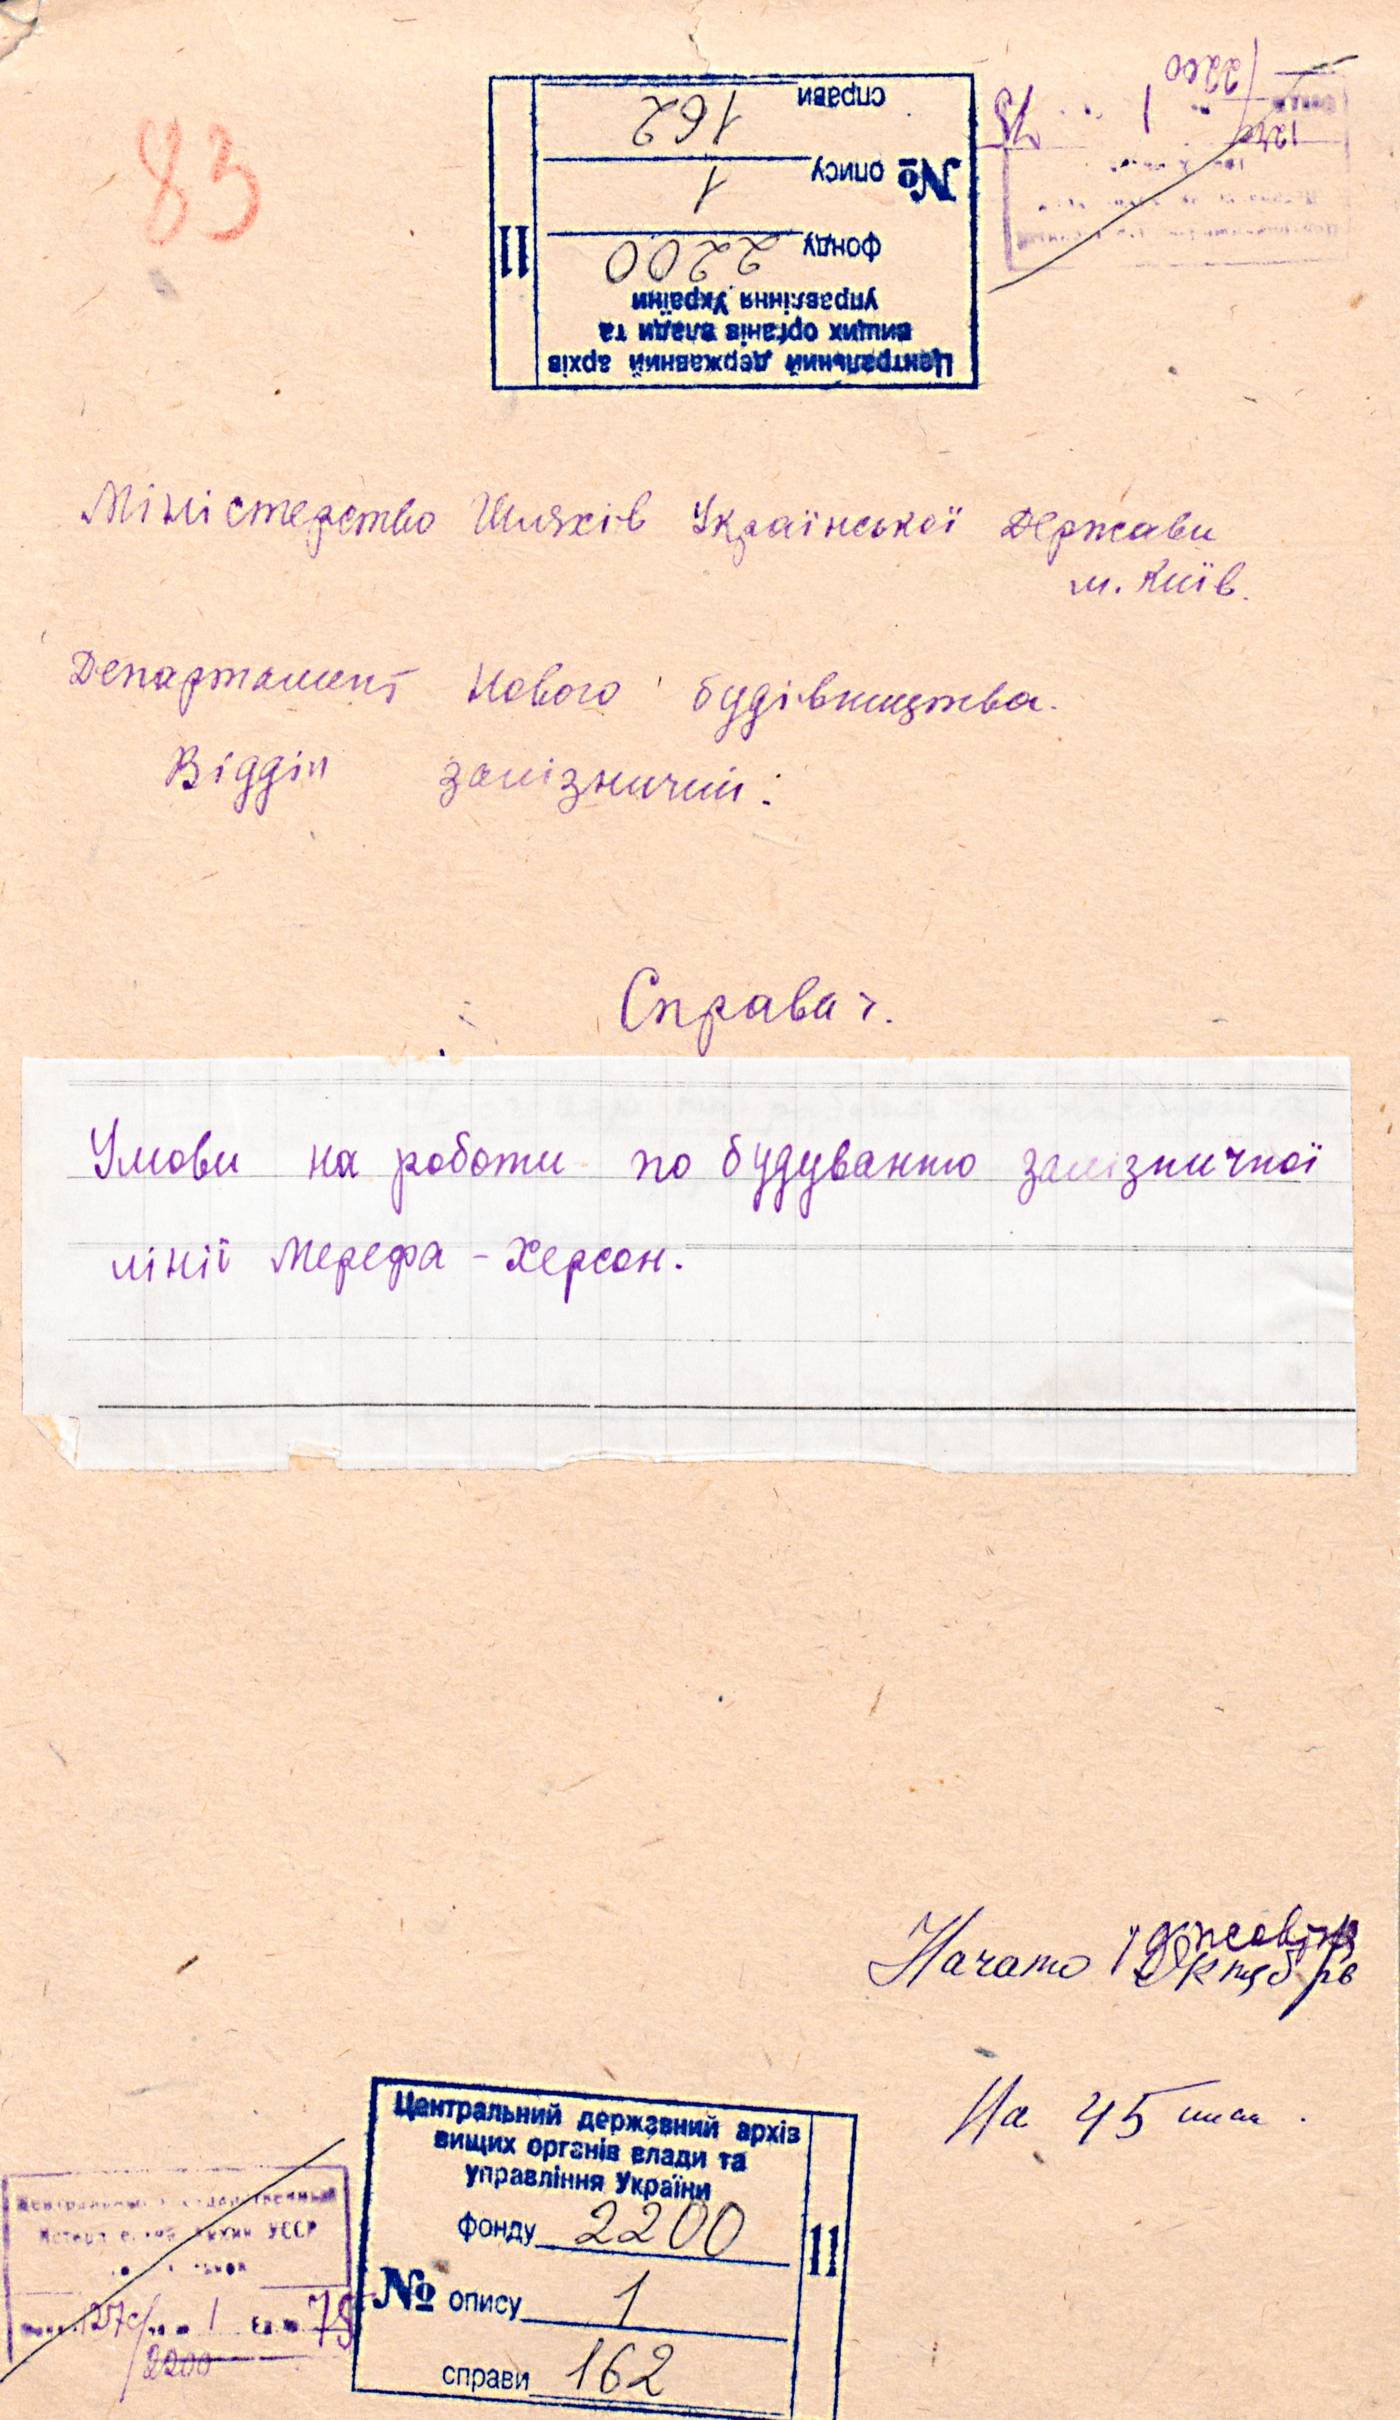 83
Центральний державний архів
вищих органів влади та
управління України
фонду 2200
№ опису 1
справи 162
11
2200
1
Міністерство Шляхів Української Держави
м. Київ.
Департамент Нового будівництва.
Відділ залізничий.
Справа ч.
Умови на роботи по будуванню залізничної
лінії Мерефа - Херсон.
Начато 1 Жовтня
Октября
На 45 лист.
Центральний державний архів
вищих органів влади та
управління України
фонду 2200
№ опису 1
справи 162
11
УССР
1 75
2200